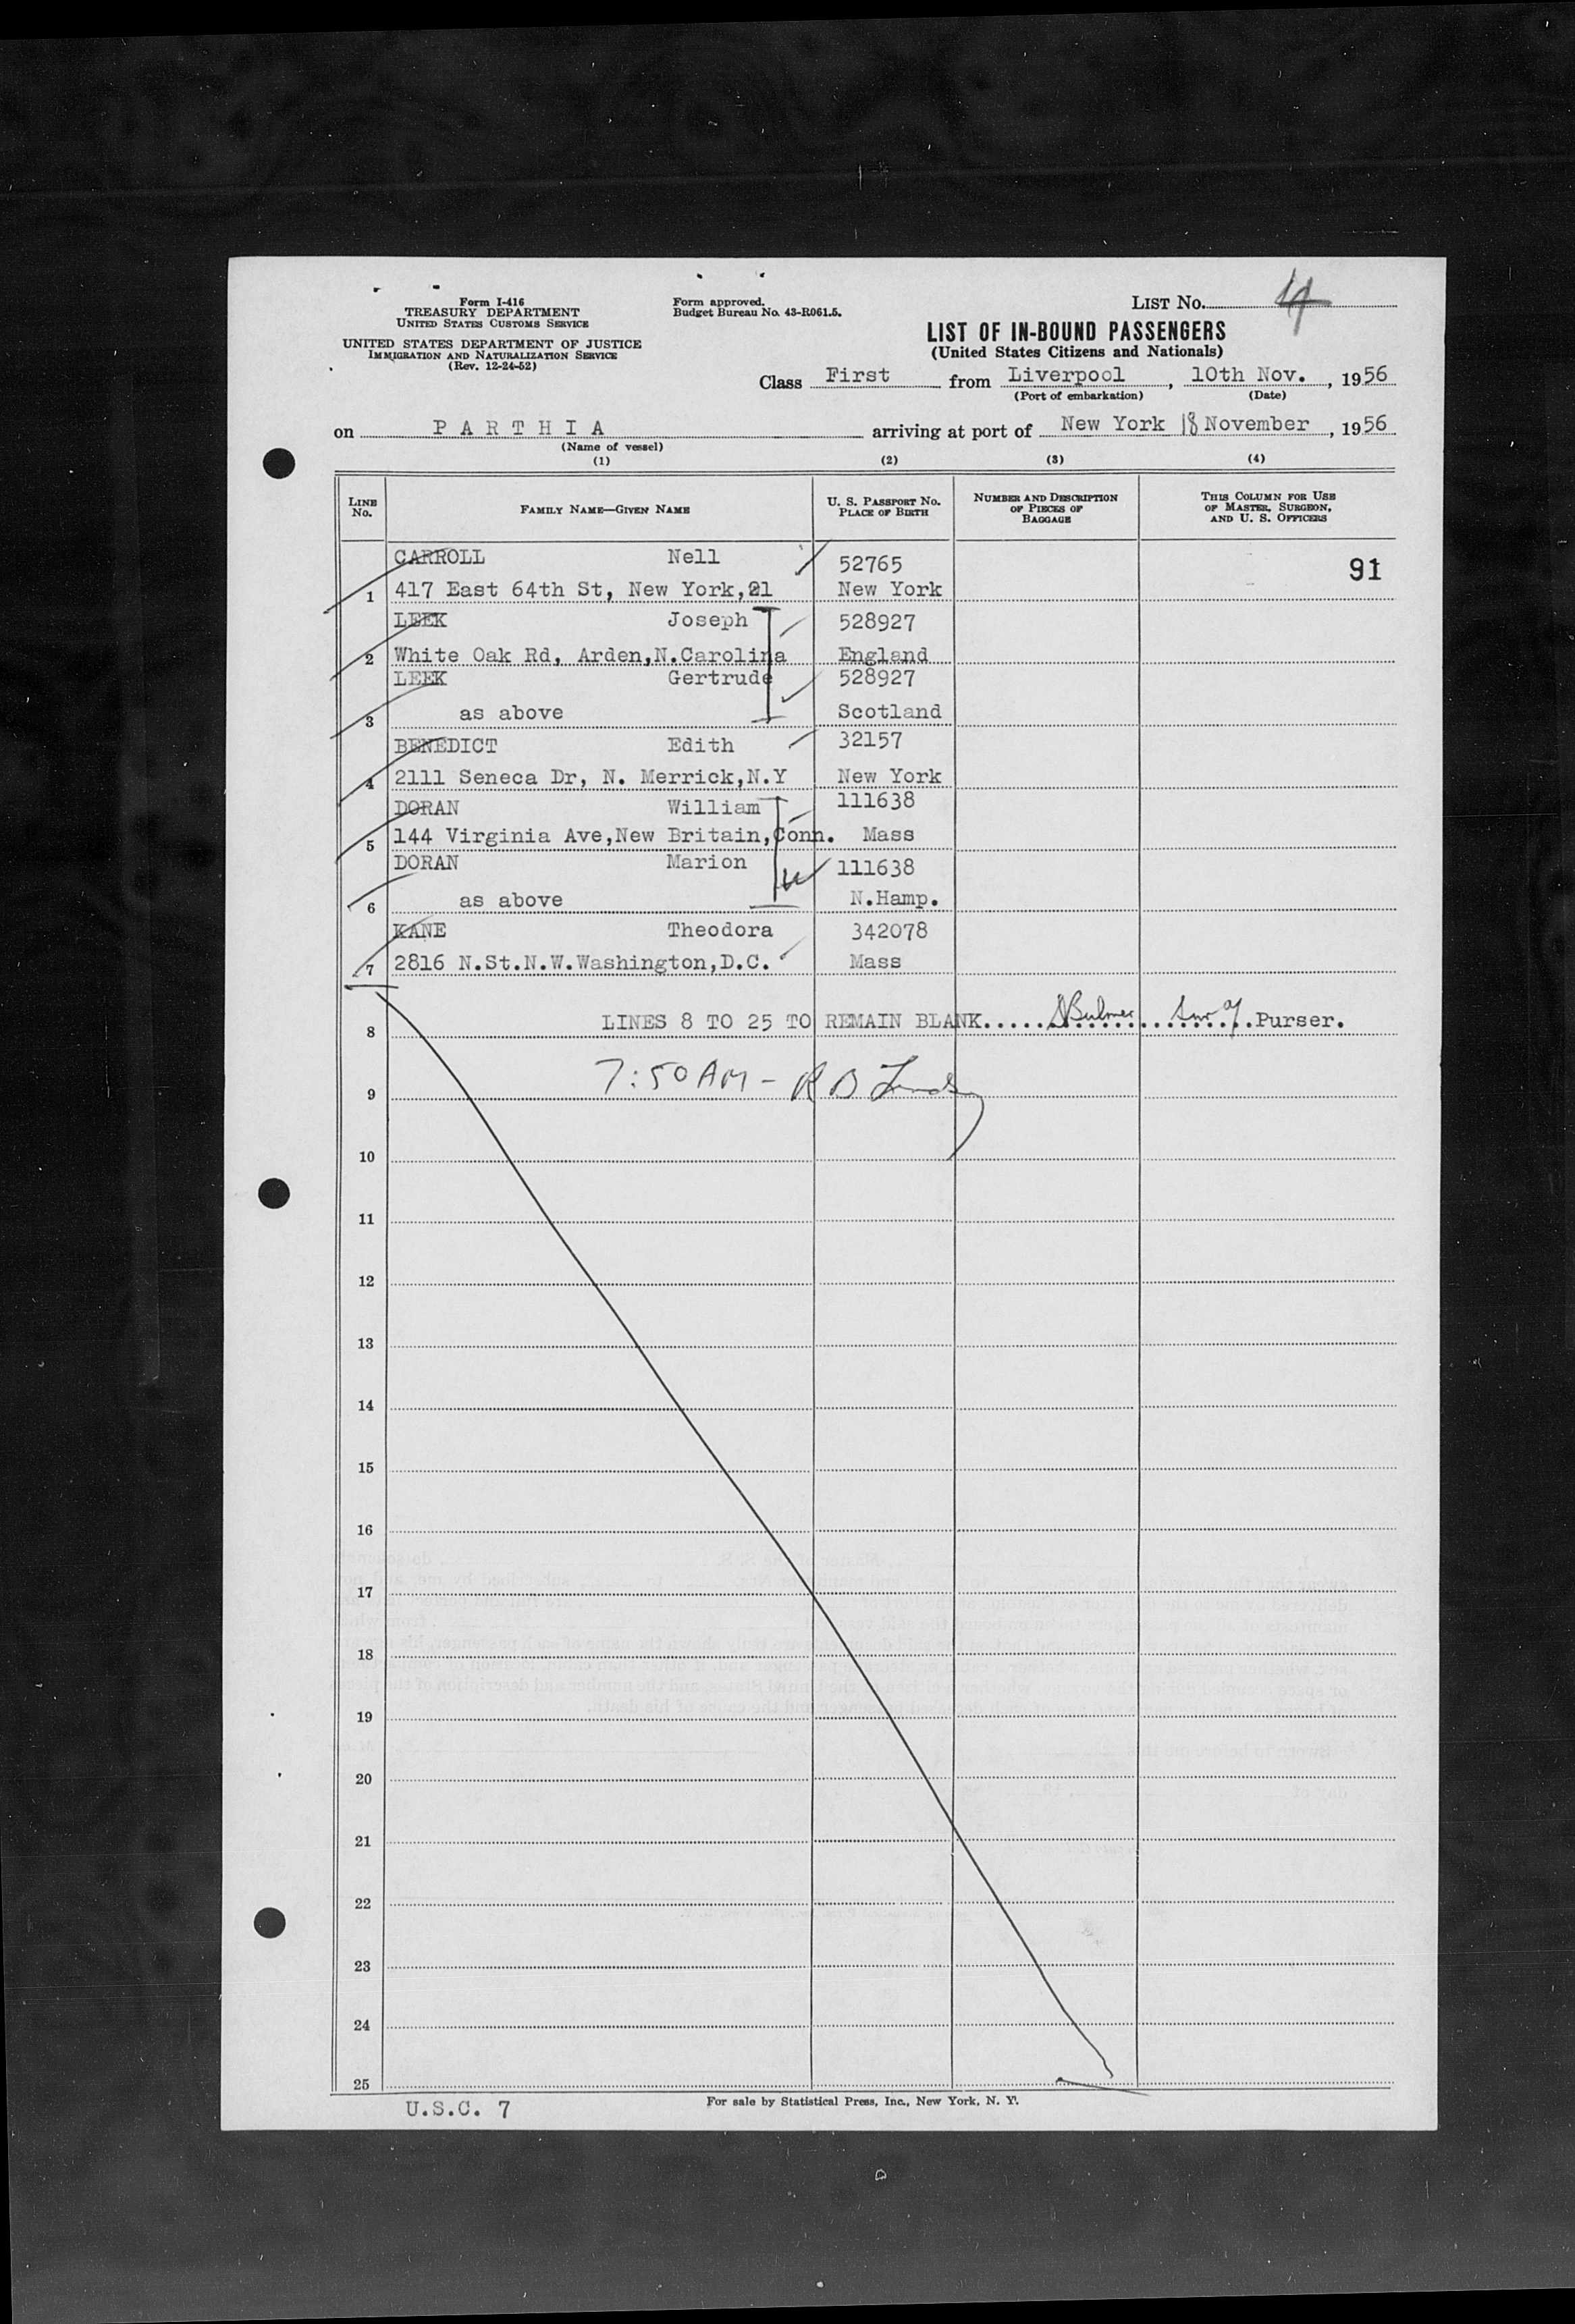 Form I-416
TREASURY DEPARTMENT
UNITED STATES CUSTOMS SERVICE
UNITED STATES DEPARTMENT OF JUSTICE
IMMIGRATION AND NATURALIZATION SERVICE
(Rev. 12-24-52)
Form approved.
Budget Bureau No. 43-R061.5.
LIST No. 4
LIST OF IN-BOUND PASSENGERS
(United States Citizens and Nationals)
Class First from Liverpool, 10th Nov., 1956
(Port of embarkation) (Date)
on PARTHIA arriving at port of New York 18 November, 1956
(Name of vessel)
(1) (2) (3) (4)
LINE No. FAMILY NAME—GIVEN NAME U. S. PASSPORT No. PLACE OF BIRTH NUMBER AND DESCRIPTION OF PIECES OF BAGGAGE THIS COLUMN FOR USE OF MASTER, SURGEON, AND U. S. OFFICERS
CARROLL Nell 52765 91
1 417 East 64th St, New York,21 New York
LEEK Joseph 528927
2 White Oak Rd, Arden,N.Carolina England
LEEK Gertrude 528927
3 as above Scotland
BENEDICT Edith 32157
4 2111 Seneca Dr, N. Merrick,N.Y New York
DORAN William 111638
5 144 Virginia Ave,New Britain,Conn. Mass
DORAN Marion 111638
6 as above N.Hamp.
KANE Theodora 342078
7 2816 N.St.N.W.Washington,D.C. Mass
8 LINES 8 TO 25 TO REMAIN BLANK. Bulmer Purser.
9 7:50 AM - R B
10
11
12
13
14
15
16
17
18
19
20
21
22
23
24
25
U.S.C. 7
For sale by Statistical Press, Inc., New York, N. Y.